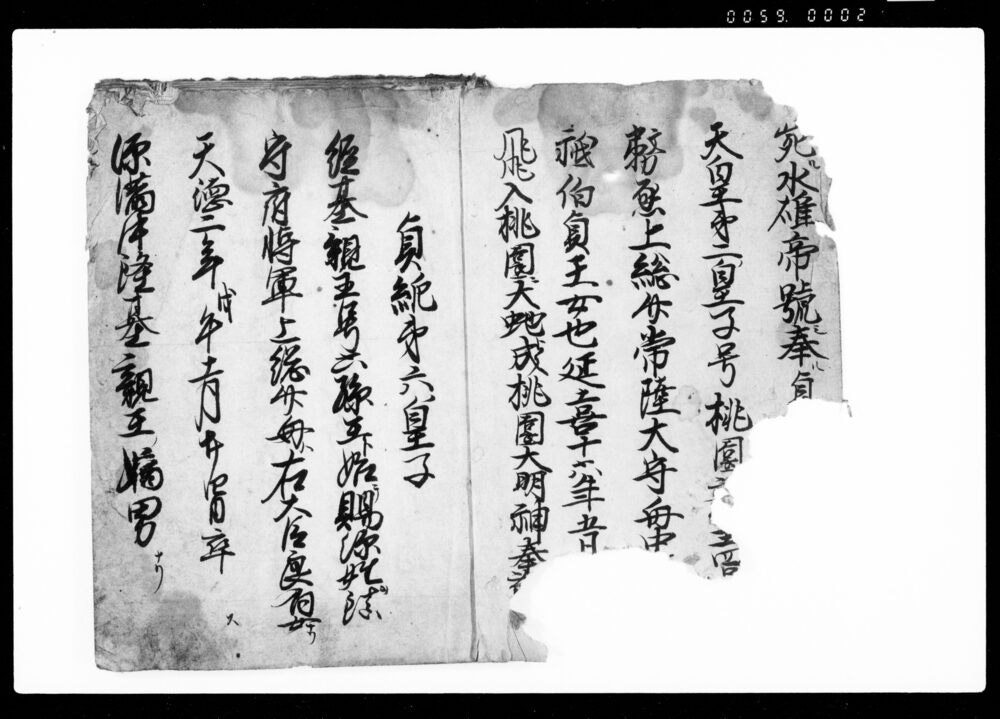 0059. 0002
水雄帝號奉貞
天皇第二皇子号桃園
上総介常陸大守母中
祇伯貞王女也延喜十六年五月
飛入桃園大虵成桃園大明神奉
貞純第六皇子
経基親王号六孫王始賜源姓
守府将軍上総介母ハ右大臣女ナリ
天徳二年戊午十一月廿四日卒
源満仲経基親王嫡男ナリ